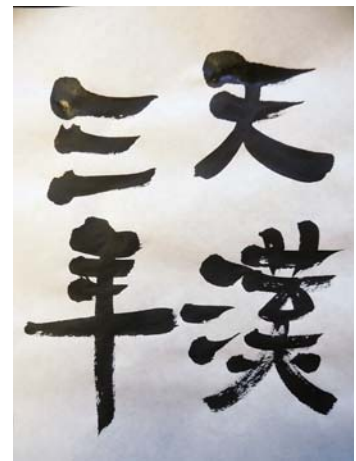 天漢
三年